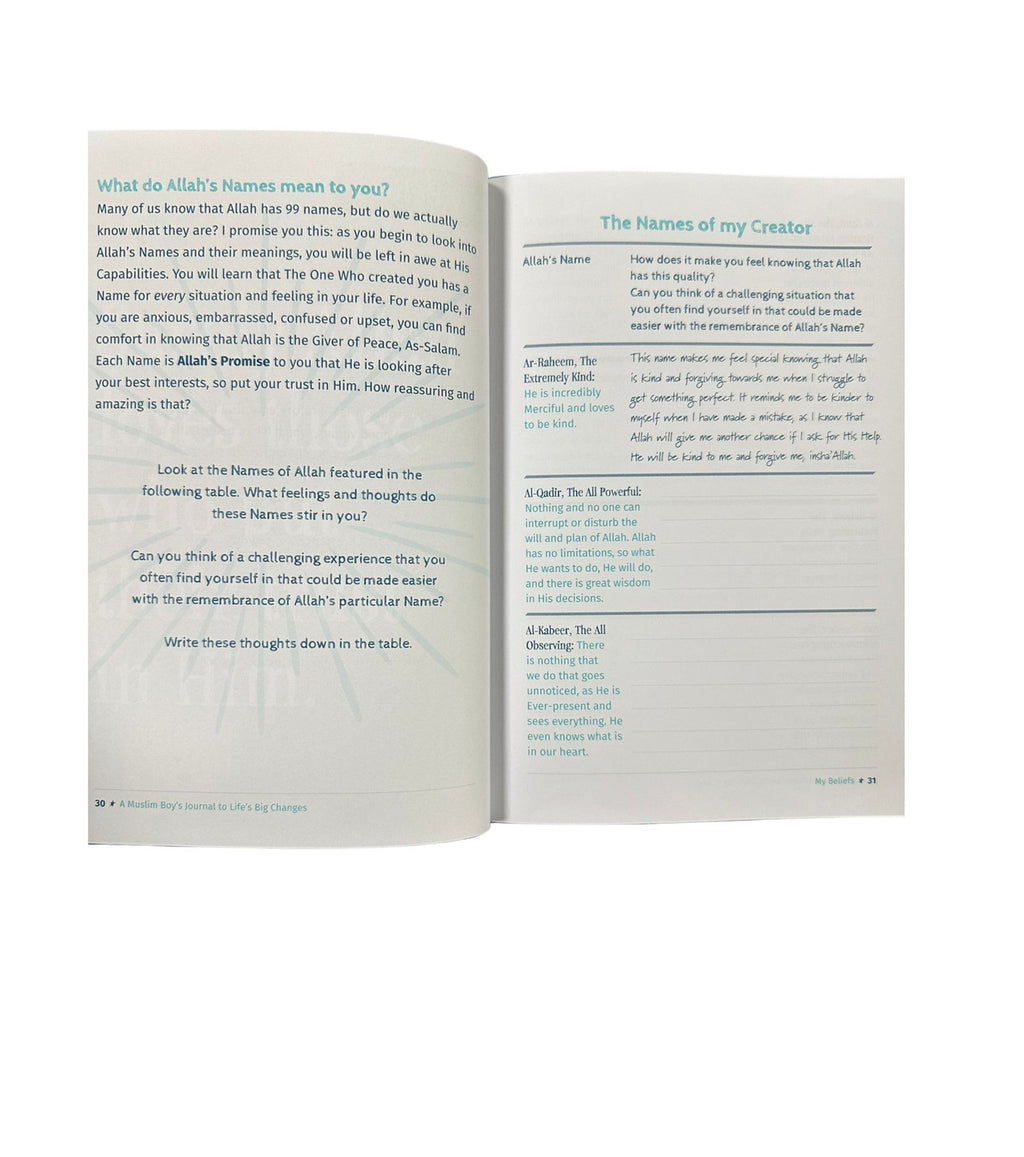 What do Allah's Names mean to you?
Many of us know that Allah has 99 names, but do we actually
know what they are? I promise you this: as you begin to look into
Allah's Names and their meanings, you will be left in awe at His
Capabilities. You will learn that The One Who created you has a
Name for every situation and feeling in your life. For example, if
you are anxious, embarrassed, confused or upset, you can find
comfort in knowing that Allah is the Giver of Peace, As-Salam.
Each Name is Allah's Promise to you that He is looking after
your best interests, so put your trust in Him. How reassuring and
amazing is that?
Look at the Names of Allah featured in the
following table. What feelings and thoughts do
these Names stir in you?
Can you think of a challenging experience that you
often find yourself in that could be made easier
with the remembrance of Allah's particular Name?
Write these thoughts down in the table.
30 ★ A Muslim Boy's Journal to Life's Big Changes
The Names of my Creator
Allah's Name
How does it make you feel knowing that Allah
has this quality?
Can you think of a challenging situation that
you often find yourself in that could be made
easier with the remembrance of Allah's Name?
Ar-Raheem, The
Extremely Kind:
He is incredibly
Merciful and loves
to be kind.
This name makes me feel special knowing that Allah
is kind and forgiving towards me when I struggle to
get something perfect. It reminds me to be kinder to
myself when I have made a mistake, as I know that
Allah will give me another chance if I ask for His Help.
He will be kind to me and forgive me, insha'Allah.
Al-Qadir, The All Powerful:
Nothing and no one can
interrupt or disturb the
will and plan of Allah. Allah
has no limitations, so what
He wants to do, He will do,
and there is great wisdom
in His decisions.
Al-Kabeer, The All
Observing: There
is nothing that
we do that goes
unnoticed, as He is
Ever-present and
sees everything. He
even knows what is
in our heart.
My Beliefs ★ 31